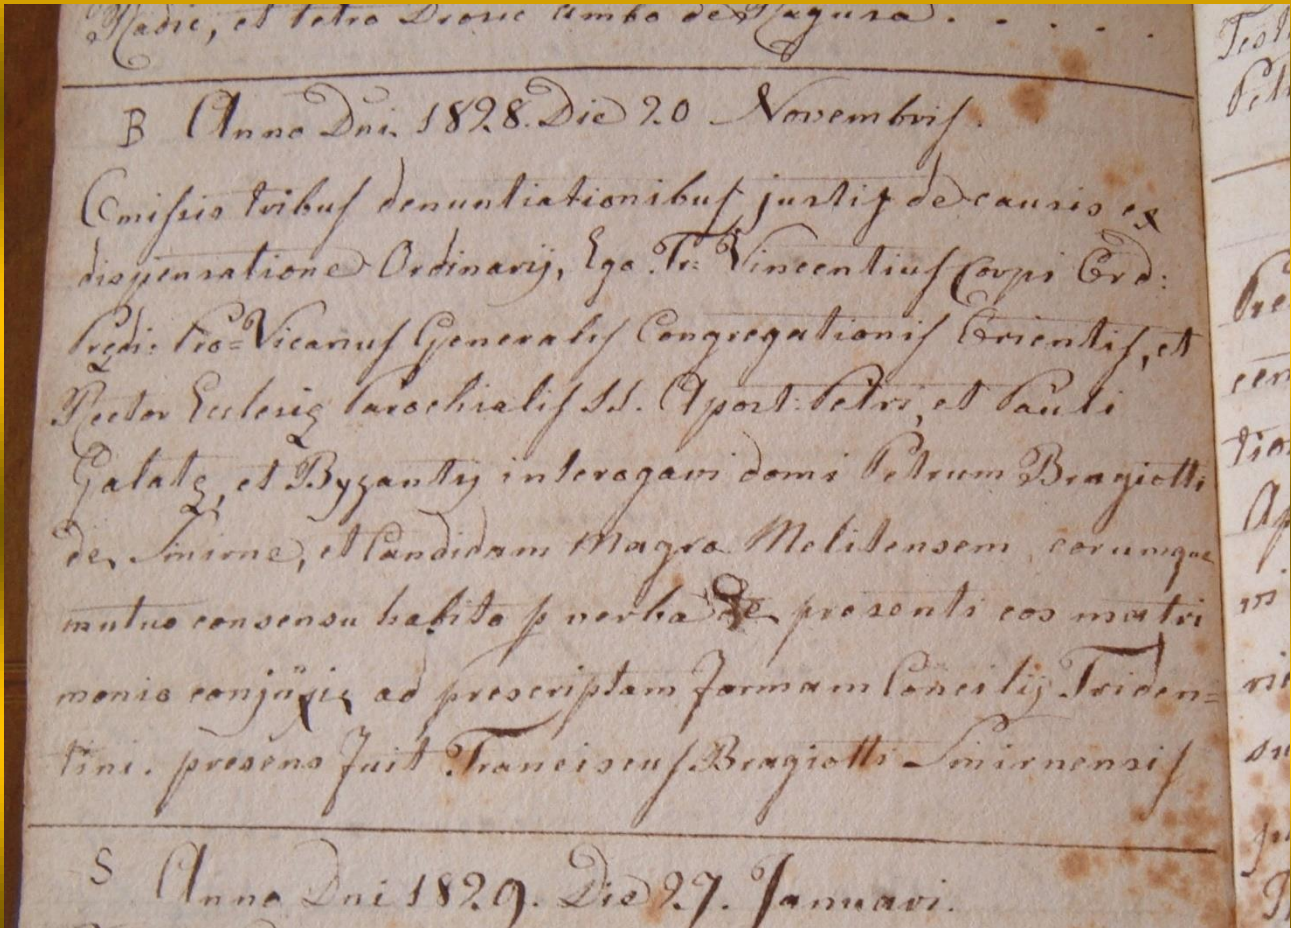 Radic, et Petro Drosic ambo de Ragusa . . . . .
B Anno Dni. 1828. Die 20 Novembris.
Omissis tribus denuntiationibus justis de causis ex
dispensatione Ordinarij, Ego Fr: Vincentius Corpi Ord:
Predi: Pro=Vicarius Generalis Congregationis Orientis, et
Rector Eclesię Parochialis SS. Apost: Petri, et Pauli
Galatę, et Byzantij interogavi domi Petrum Bragiotti
de Smirne, et Candidam Magro Melitensem eorumque
mutuo consensu habito p verba de presenti eos matri
monio conjũxi, ad prescriptam formam Concilij Triden=
tini. presens fuit Franciscus Bragiotti Smirnensis
S Anno Dni 1829. Die 27. Januari.